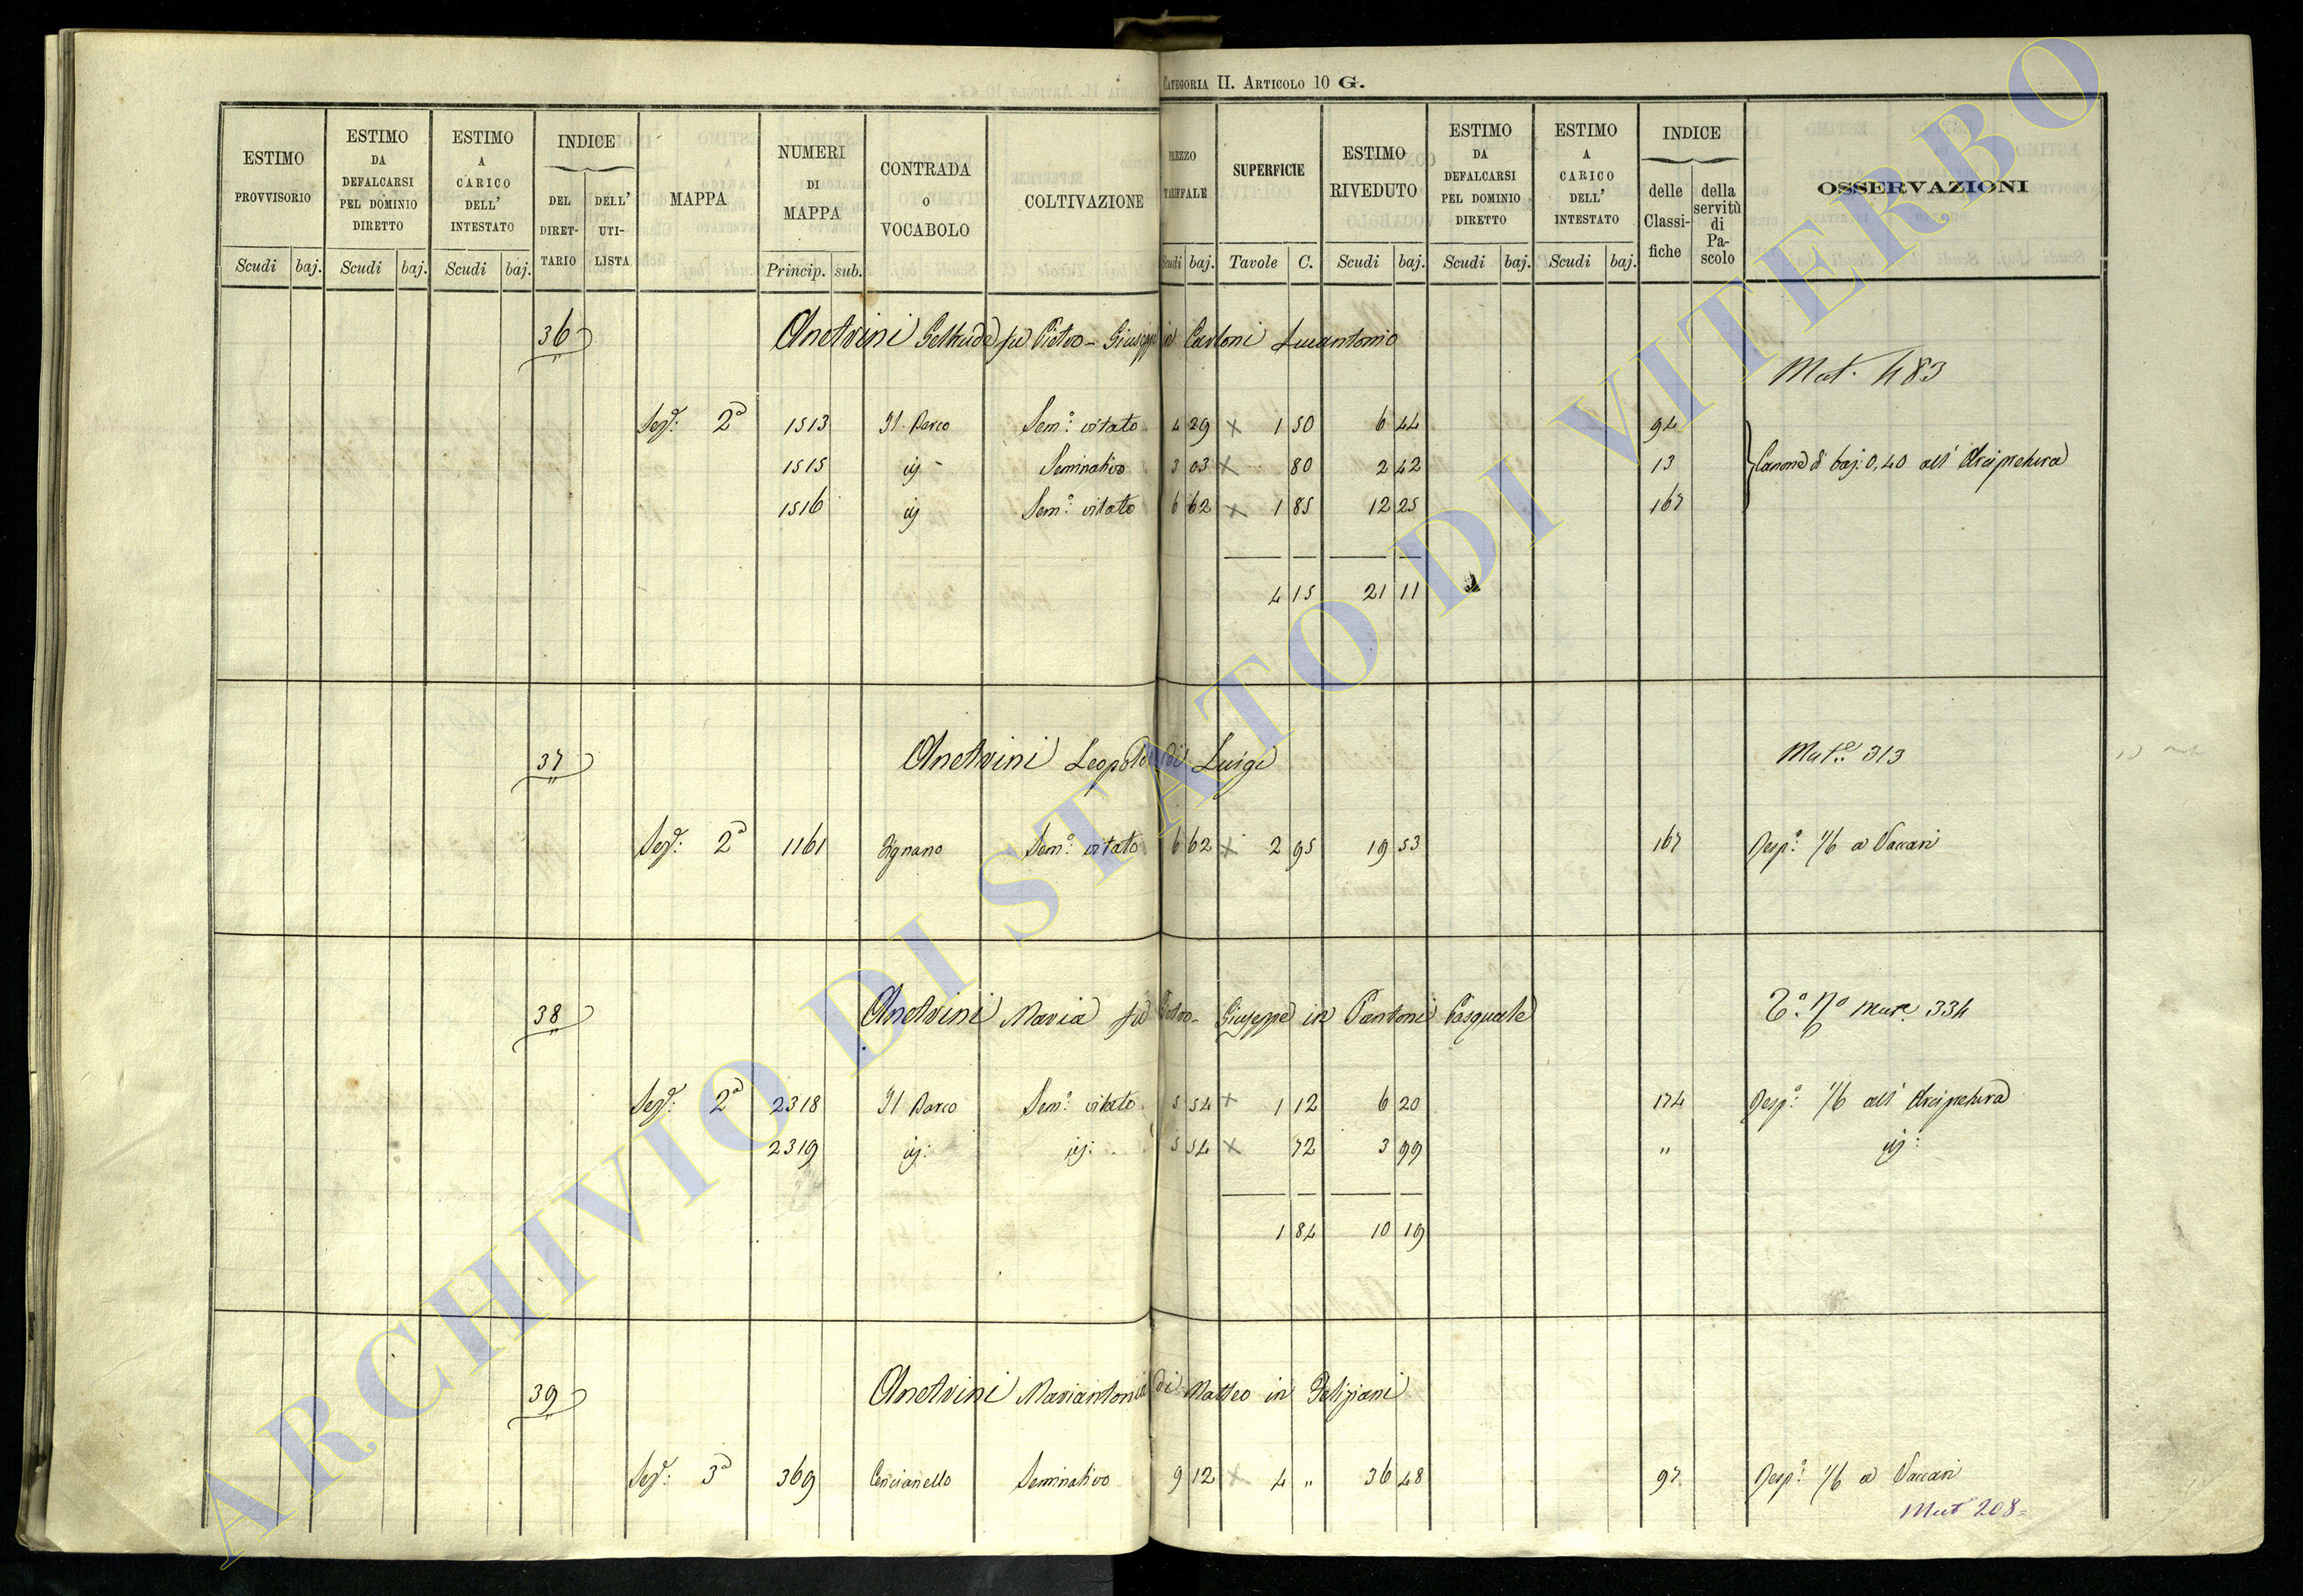 CATEGORIA II. ARTICOLO 10 G.
ESTIMO PROVVISORIO Scudi baj.
ESTIMO DA DEFALCARSI PEL DOMINIO DIRETTO Scudi baj.
ESTIMO A CARICO DELL' INTESTATO Scudi baj.
INDICE DEL DIRETTARIO DELL' UTILISTA
MAPPA
NUMERI DI MAPPA Princip. sub.
CONTRADA O VOCABOLO
COLTIVAZIONE
REZZO TARIFFALE Scudi baj.
SUPERFICIE Tavole C.
ESTIMO RIVEDUTO Scudi baj.
ESTIMO DA DEFALCARSI PEL DOMINIO DIRETTO Scudi baj.
ESTIMO A CARICO DELL' INTESTATO Scudi baj.
INDICE delle Classifiche della servitù di Pascolo
OSSERVAZIONI
36 Anetrini Geltrude fu Pietro-Giuseppe in Carloni Lucantonio
Mut. 483
Sez. 2a 1513 Il Parco Sem.o vitato 4 29 x 1 50 6 44 94
1515 id Seminativo 3 03 x 80 2 42 13 Canone di baj: 0,40 all' Arcipretura
1516 id Sem.o vitato 6 62 x 1 85 12 25 167
4 15 21 11
37 Anetrini Leopoldo di Luigi Mut. 313
Sez. 2a 1161 Agnano Sem.o vitato 6 62 x 2 95 19 53 167 Resp.a 1/6 a Vaccari
38 Anetrini Maria fu Pietro-Giuseppe in Pantoni Pasquale 334
Sez. 2a 2318 Il Parco Sem.o vitato 5 54 x 1 12 6 20 174 Resp.a 1/6 all' Arcipretura
2319 id: id: 5 54 x 72 3 99 " id:
1 84 10 19
39 Anetrini Mariantonia di Matteo in Feliziani
Sez. 3a 369 Cencianello Seminativo 9 12 x 4 " 36 48 97 Resp.a 1/6 a Vaccari
Mut 208=
ARCHIVIO DI STATO DI VITERBO